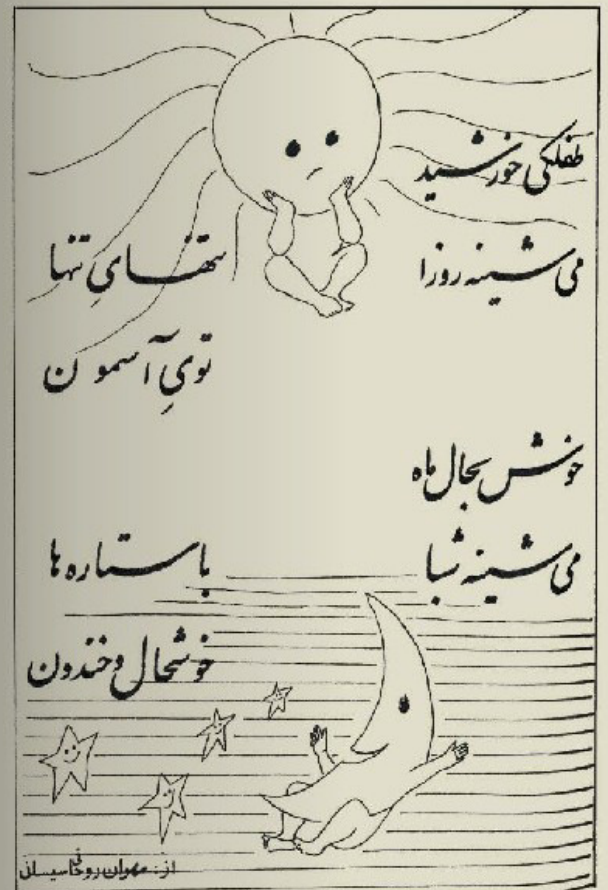 طفلکی خورشید
می شینه روزا تنهایِ تنها
تویِ آسمون
خوش بحال ماه
می شینه شبا با ستاره ها
خوشحال و خندون
از: مهران روحانی سیسانی